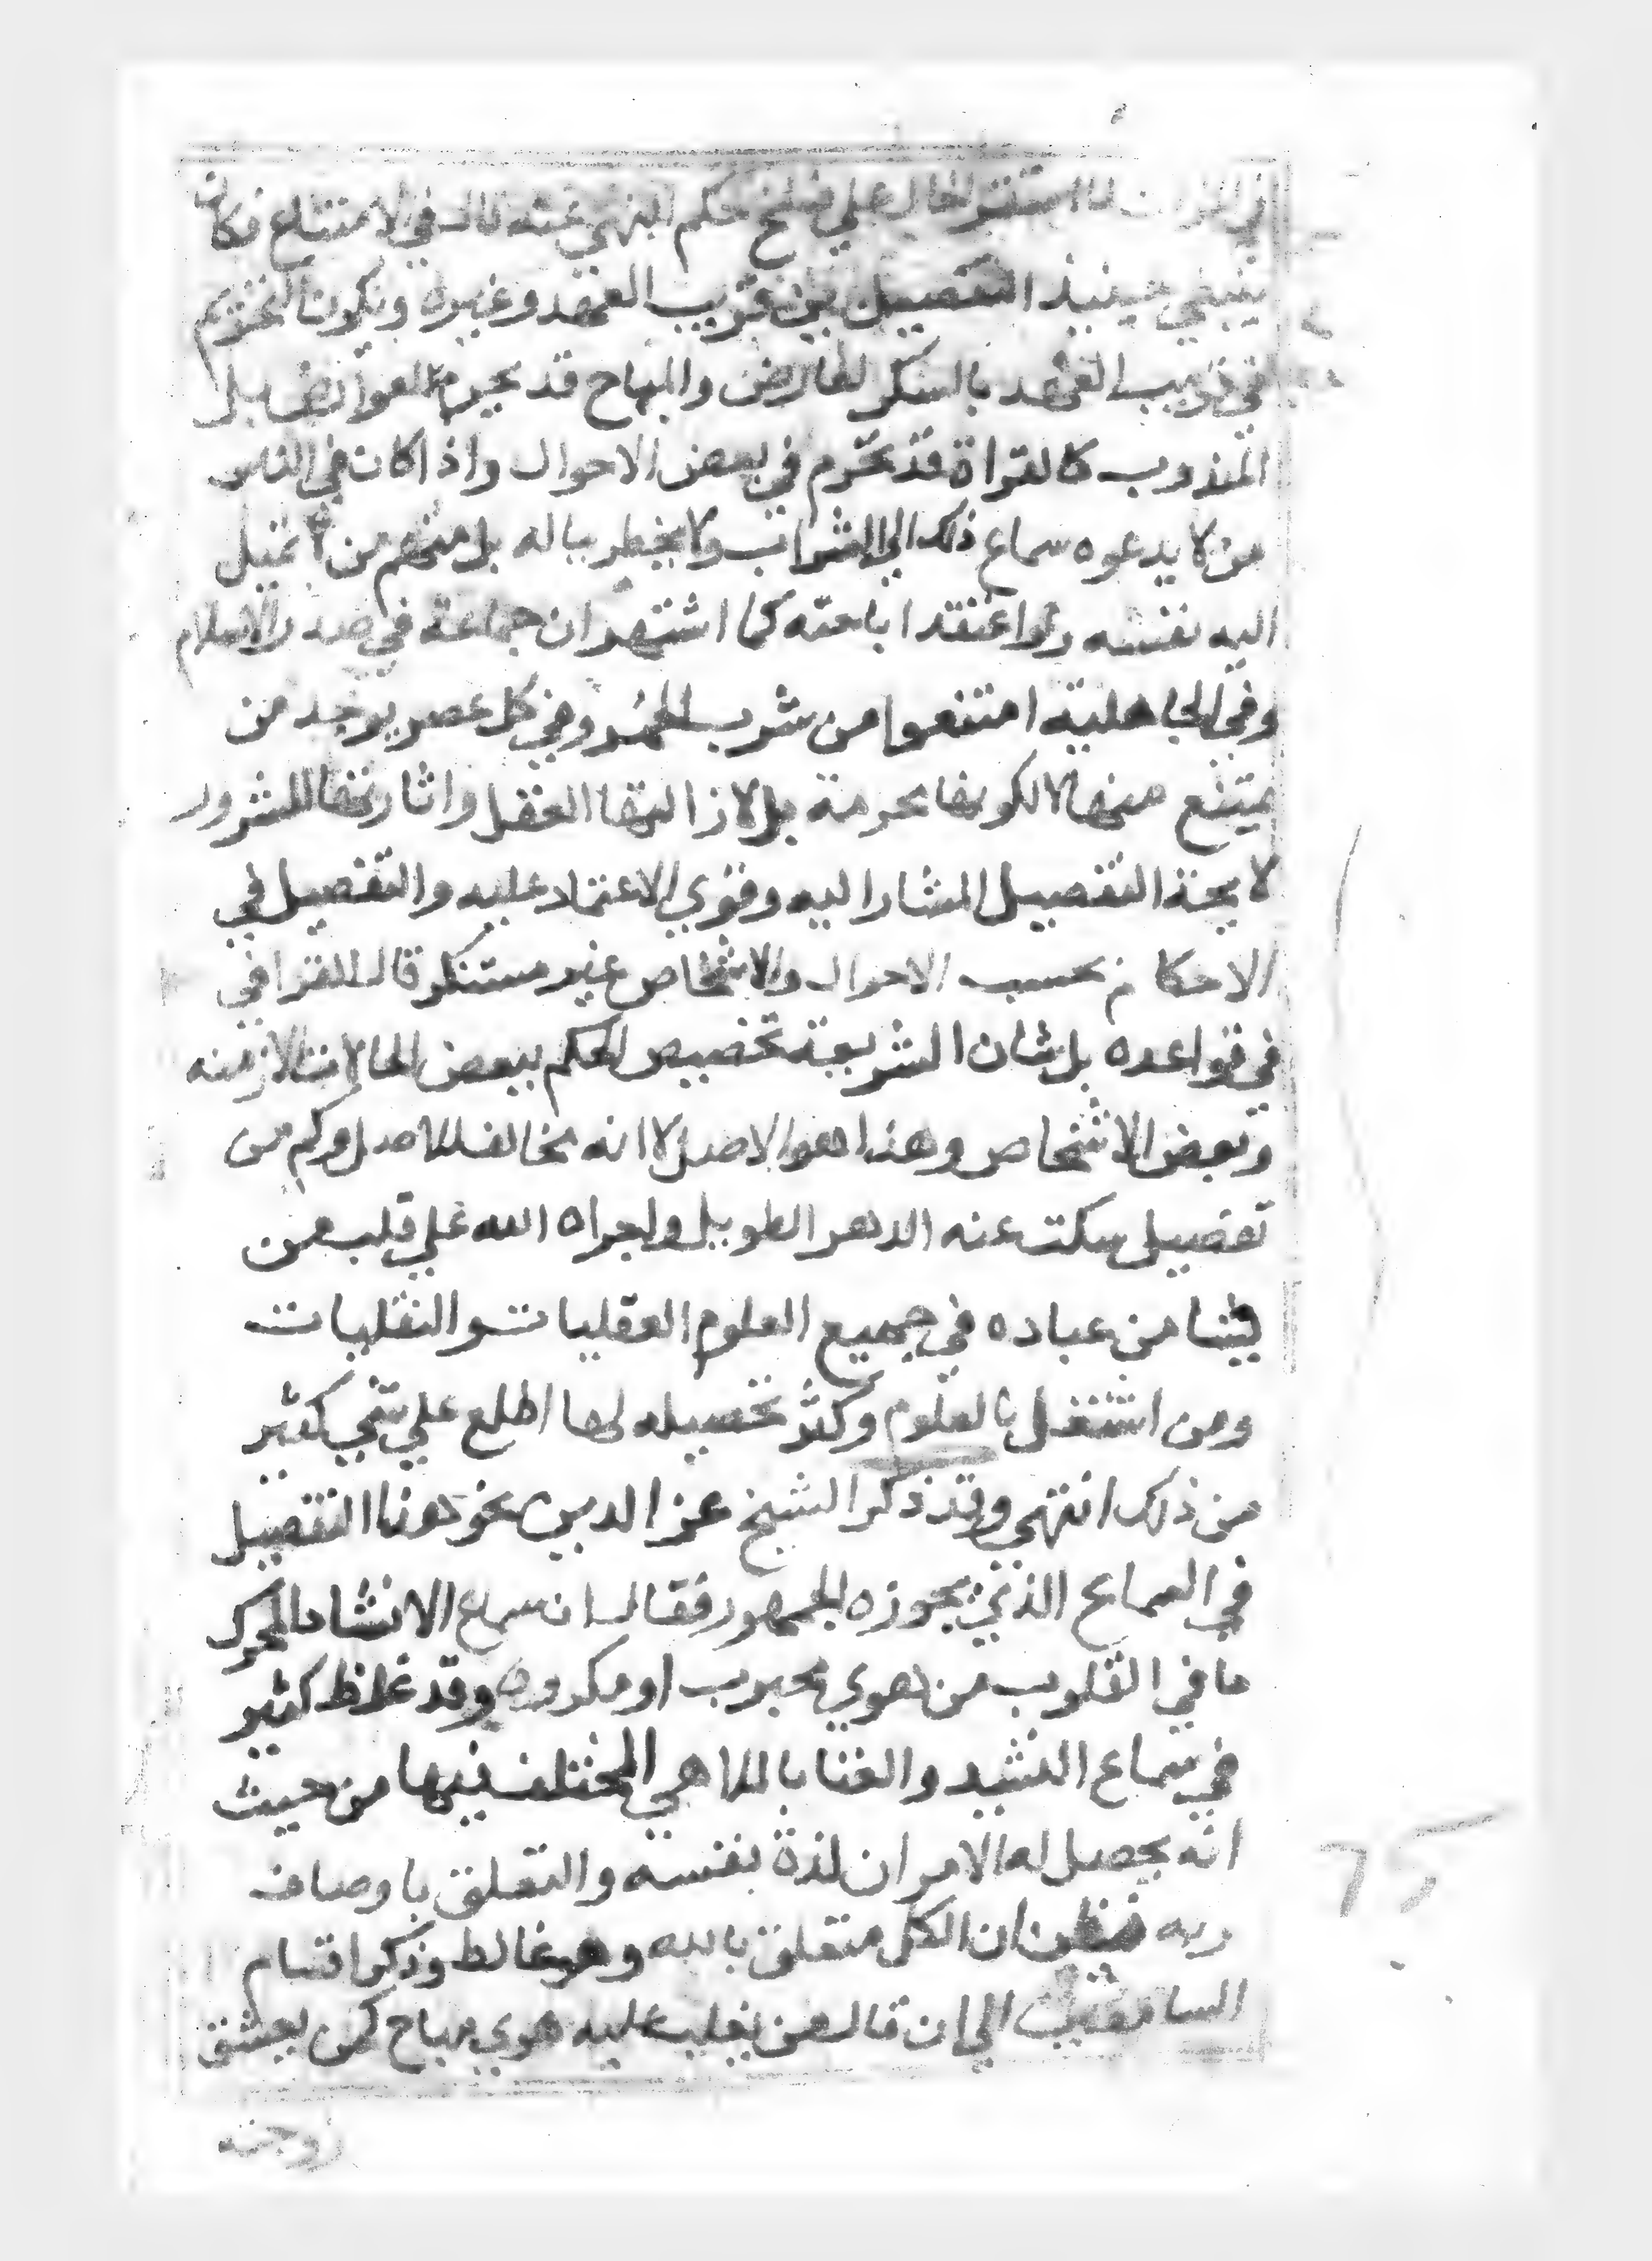 لما استقر الحال علي نسخ حكم النهي عنه قال في الامتناع فكان
ينبغي حينيذ التفصيل بين قريب العهد وغيره ويكون التحريم
في قريب العهد بالسكر لعارض والمباح قد يحرم للعوارض بل
المندوب كالقراة قد تحرم في بعض الاحوال واذا كان في الناس
من لا يدعوه سماع ذلك الي الشراب ولا يخطر بباله بل منهم من لا تميل
اليه نفسه ولو اعتقد اباحته كما اشتهر ان جماعة في صدر الاسلام
وفي الجاهلية امتنعوا من شرب الخمر وفي كل عصر يوجد من
يمتنع منها لا لكونها محرمة بل لازالتها العقل واثارتها للشرور
لا يجة التفصيل المشار اليه وقوي الاعتماد عليه والتفصيل في
الاحكام بحسب الاحوال والاشخاص غير مستنكر قال القرافي
في قواعده بل شان الشريعة تخصيص الحكم ببعض الحالات الازمنه
وبعض الاشخاص وهذا هو الاصل لا انه مخالف للاصل وكم من
تفصيل سكت عنه الدهر الطويل واجراه الله علي قلب من
يشا من عباده في جميع العلوم العقليات والنقليات
ومن اشتغل بالعلوم وكثر تحصيله لها اطلع علي شي كثير
من ذلك انتهي وقد ذكر الشيخ عز الدين نحو هذا التفصيل
في السماع الذي يجوزه الجمهور فقال ان سماع الانشاد المحرك
ما في القلوب من هوي محبوب او مكروه وقد غلظ كثير
في سماع النشيد والغنا بالملاهي المختلف فيها من حيث
انه يحصل له الامران لذة نفسه والتعلق باوصاف
ربه فيظن ان الكل متعلق بالله وهو غالط وذكر اقسام
السامعين الي ان قال من يغلب عليه هوي مباح كمن يعشق
زوجته